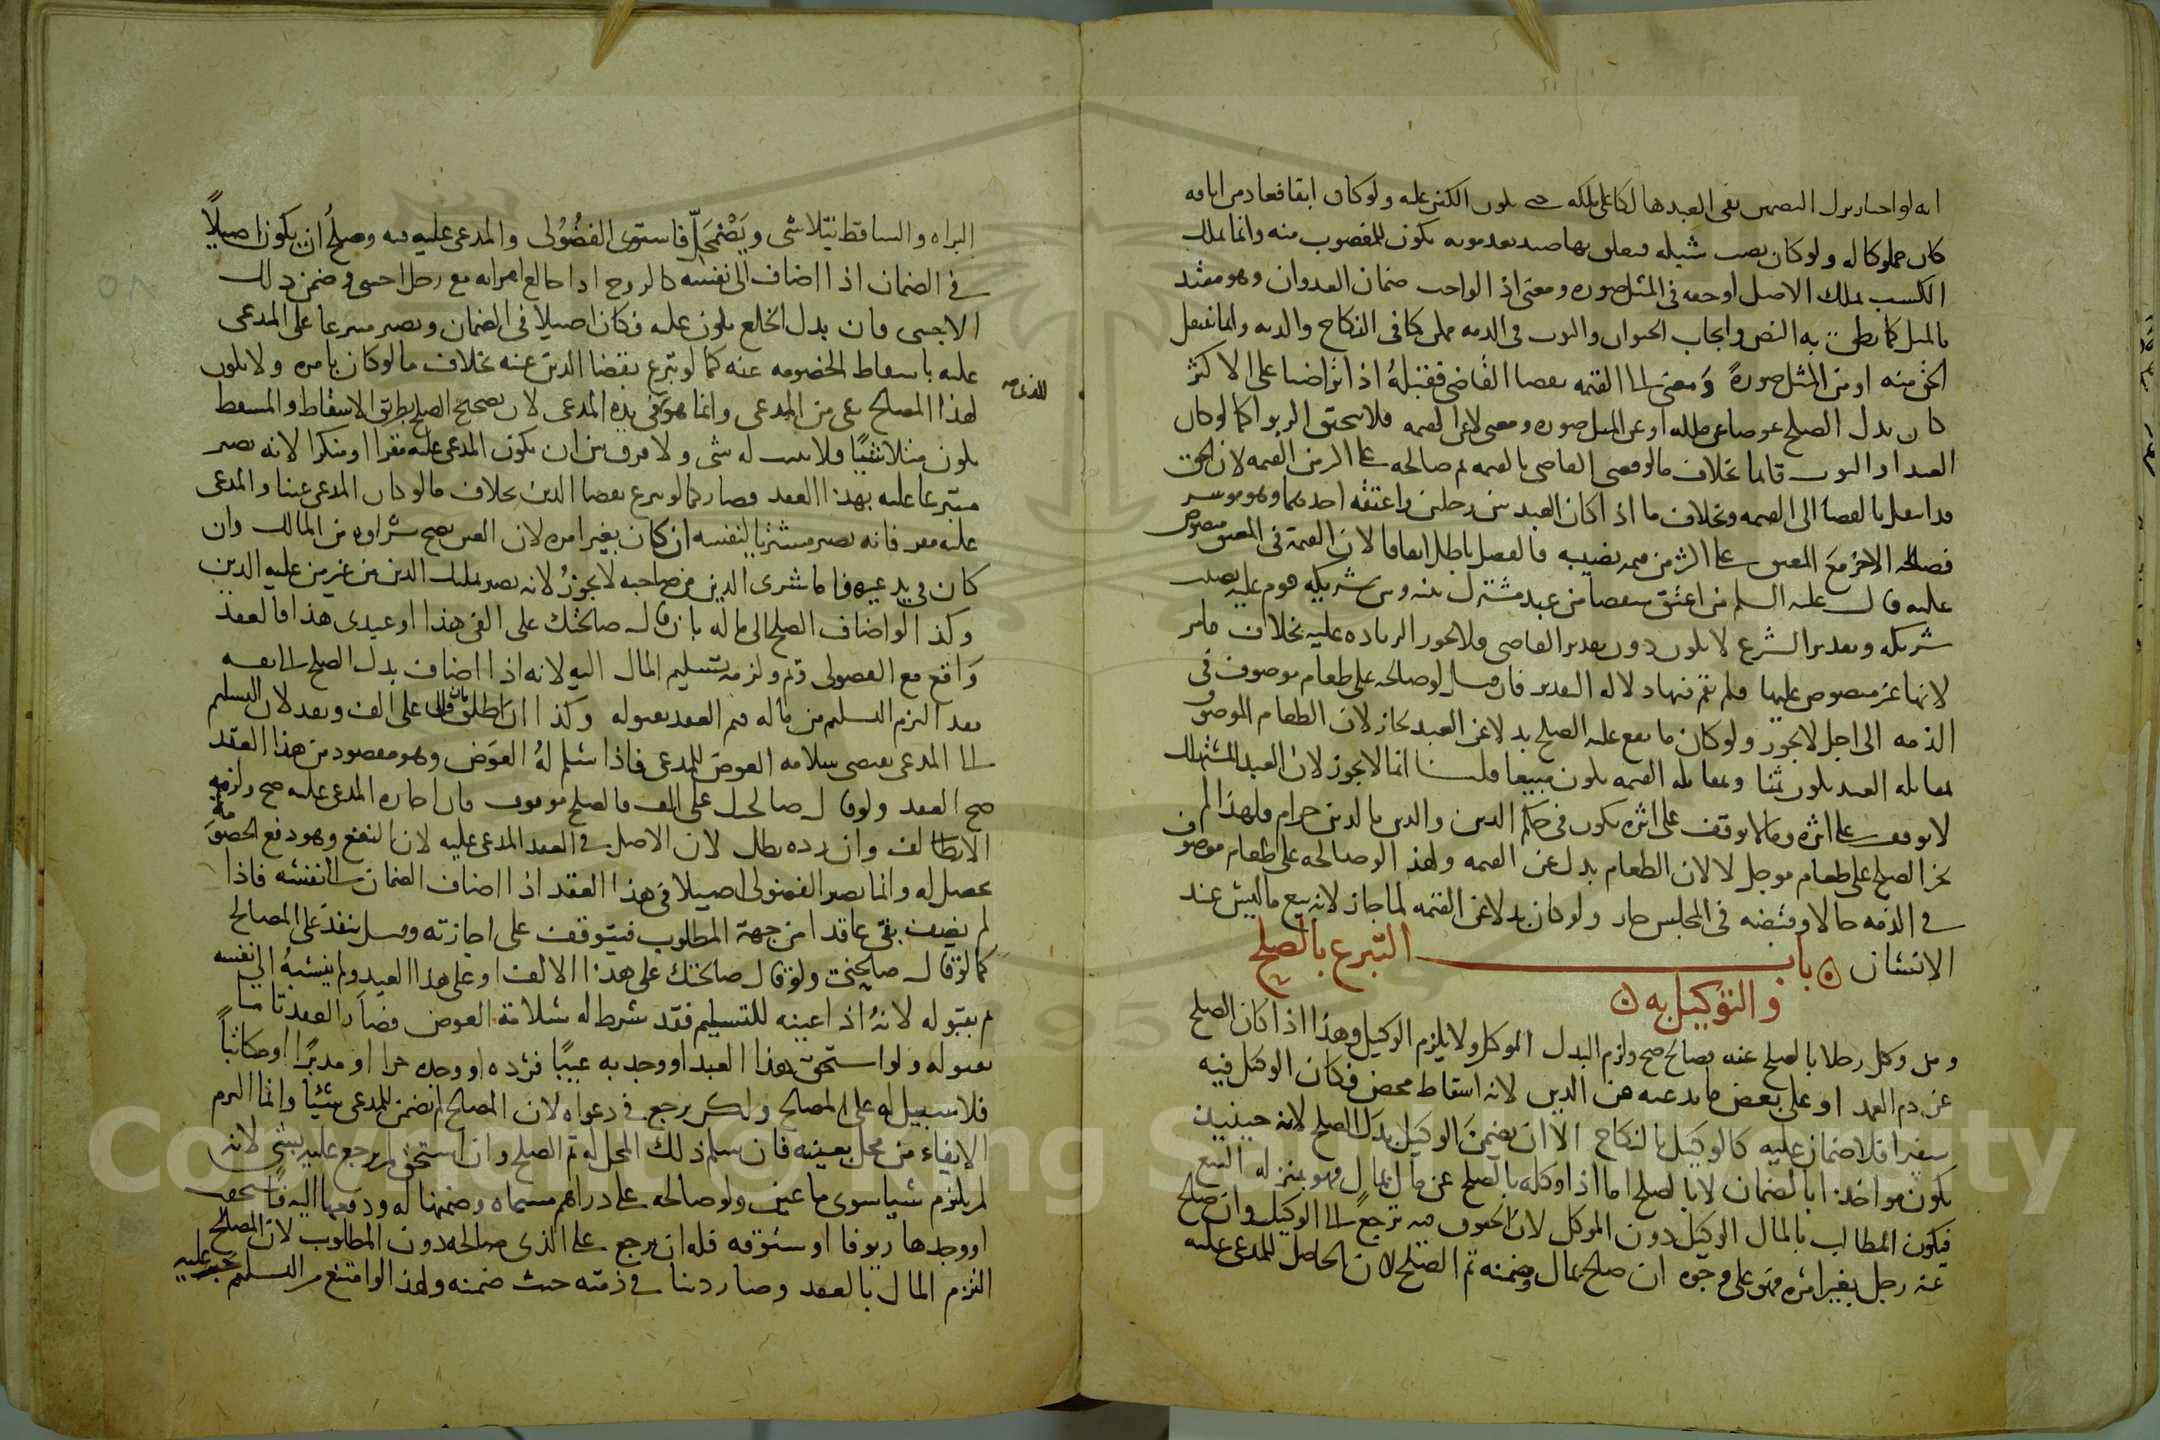 انه لو اختار ترك التضمين بقى العبد هالكا على ملكه حتى يكون الكفن عليه ولو كان ابقا فعاد من اباقه
كان مملوكا له ولو كان نصب شبكه فتعلق بها صيد بعد موته يكون للمغصوب منه وانما يملك
الكسب بملك الاصل او حقه في المثل صوره ومعنى اذ الواجب ضمان العدوان وهو مقيد
بالمثل كما نطق به النص وايجاب الحيوان والثوب في الذمه ممكن كما في النكاح والديه وانما ينتقل
الحق منه او من المثل صورة ومعنى الى القيمه بقضا القاضي فقبله اذا تراضيا على الاكثر
كان بدل الصلح عوضا عن ملكه او عن المثل صوره ومعنى لا عن القيمه فلا يتحقق الربوا كما لو كان
العبد او الثوب قائما بخلاف ما لو قضى القاضي بالقيمه ثم صالحه على اكثر من القيمه لان الحق
قد انتقل بالقضا الى القيمه وبخلاف ما اذا كان العبد بين رجلين واعتقه احدهما وهو موسر
فصالحه الاخر مع المعتق على اكثر من قيمه نصيبه فالفضل باطل اتفاقا لان القيمة في المعتق منصوص
عليه قال عليه السلم من اعتق شقصا من عبد مشترك بينه وبين شريكه قوم عليه نصيب
شريكه وتقدير الشرع لا يكون دون تقدير القاضي ولا يجوز الزياده عليه بخلاف ما مر
لانها غير منصوص عليها فلم تقم فيها دلالة التقدير فان قيل لو صالحه على طعام موصوف في
الذمه الى اجل لا يجوز ولو كان ما يقع عليه الصلح بدلا عن العبد لجاز لان الطعام الموصوف
بمقابله العبد يكون ثمنا وبمقابله القيمه يكون مبيعا قلنا انما لا يجوز لان العبد المستهلك
لا يوقف على اثره وما لا يوقف على اثره يكون في حكم الدين والدين بالدين حرام فلهذا لم
يجز الصلح على طعام موجل لا لان الطعام بدل عن القيمه ولهذا لو صالحه على طعام موصوف
في الذمه حالا وقبضه في المجلس جاز ولو كان بدلا عن القيمه لما جاز لانه بيع ما ليس عند
الانسان باب التبرع بالصلح
والتوكيل به
ومن وكل رجلا بالصلح عنه فصالح صح ولزم البدل الموكل ولا يلزم الوكيل وهذا اذا كان الصلح
عن دم العمد او على بعض ما يدعيه من الدين لانه اسقاط محض فكان الوكيل فيه
سفيرا فلا ضمان عليه كالوكيل بالنكاح الا ان يضمن الوكيل بدل الصلح لانه حينيذ
يكون مواخذا بالضمان لا بالصلح اما اذا وكله بالصلح عن مال بمال فهو بمنزله البيع
فيكون المطالب بالمال الوكيل دون الموكل لان الحقوق فيه ترجع الى الوكيل وان صلح
عنه رجل بغير امره فهو على وجوه ان صلح بمال وضمنه تم الصلح لان الحاصل للمدعى عليه
البراه والساقط يتلاشى ويضمحل فاستوى الفضولى والمدعى عليه فيه وصلح ان يكون اصيلا
في الضمان اذا اضاف الى نفسه كالزوج اذا خالع امراته مع رجل اجنبي وضمن ذلك
الاجنبي فان بدل الخلع يكون عليه فكان اصيلا في الضمان ويصير متبرعا على المدعى
عليه باسقاط الخصومه عنه كما لو تبرع بقضا الدين عنه بخلاف ما لو كان بامره ولا يكون
لهذا المصالح شي من المدعى وانما هو في يده المدعى لان تصحيح الصلح بطريق الاسقاط والمسقط
يكون متلاشيا فلا يثبت له شى ولا فرق بين ان يكون المدعى عليه مقرا او منكرا لانه يصير
متبرعا عليه بهذا العقد فصار كما لو تبرع بقضا الدين بخلاف ما لو كان المدعى عينا والمدعى
عليه مقر فانه يصير مشتريا لنفسه ان كان بغير امره لان العين يصح شراوه من المالك وان
كان في يد غيره فاما شرى الدين من صاحبه لا يجوز لانه يصير تمليك الدين من غير من عليه الدين
وكذا لو اضاف الصلح الى ماله بان قال صالحتك على الفى هذا او عبدى هذا فالعقد
واقع مع الفضولى وتم ولزمه تسليم المال اليه لانه اذا اضاف بدل الصلح الى نفسه
فقد التزم التسليم من ماله فتم العقد بقبوله وكذا ان اطلق بان قال على الف ونقد لان التسليم
الى المدعى يقتضى سلامه العوض للمدعى فاذا سلم له العوض وهو مقصود من هذا العقد
صح العقد ولو قال صالحتك على الف فالصلح موقوف فان اجازه المدعى عليه صح ولزمه
الالف وان رده بطل لان الاصل في العقد المدعى عليه لان النفع وهو دفع الخصومه
يحصل له وانما يصير الفضولى اصيلا في هذا العقد اذا اضاف الضمان الى نفسه فاذا
لم يضف بقى عاقدا من جهة المطلوب فيتوقف على اجازته وقيل ينفذ على المصالح
كما لو قال صالحنى ولو قال صالحتك على هذا الالف او على هذا العبد ولم ينسبه الى نفسه
تم بقبوله لانه اذا عينه للتسليم فقد شرط له سلامة العوض فصار العقد تاما
بقبوله ولو استحق هذا العبد او وجد به عيبا فرده او وجده حرا او مدبرا او مكاتبا
فلا سبيل له على المصالح ولكن يرجع في دعواه لان المصالح لم يضمن للمدعى شيئا وانما التزم
الايفاء من محل بعينه فان سلم ذلك المحل له تم الصلح وان استحق لم يرجع عليه بشى لانه
لم يلتزم شيا سوى ما عين ولو صالحه على دراهم مسماه وضمنها له ودفعها اليه فاستحقت
او وجدها زيوفا او ستوقه فله ان يرجع على الذى صالحه دون المطلوب لان المصالح
التزم المال بالعقد وصار دينا في ذمته حيث ضمنه ولهذا لو امتنع من التسليم يجبر عليه
Copyright © King Saud University